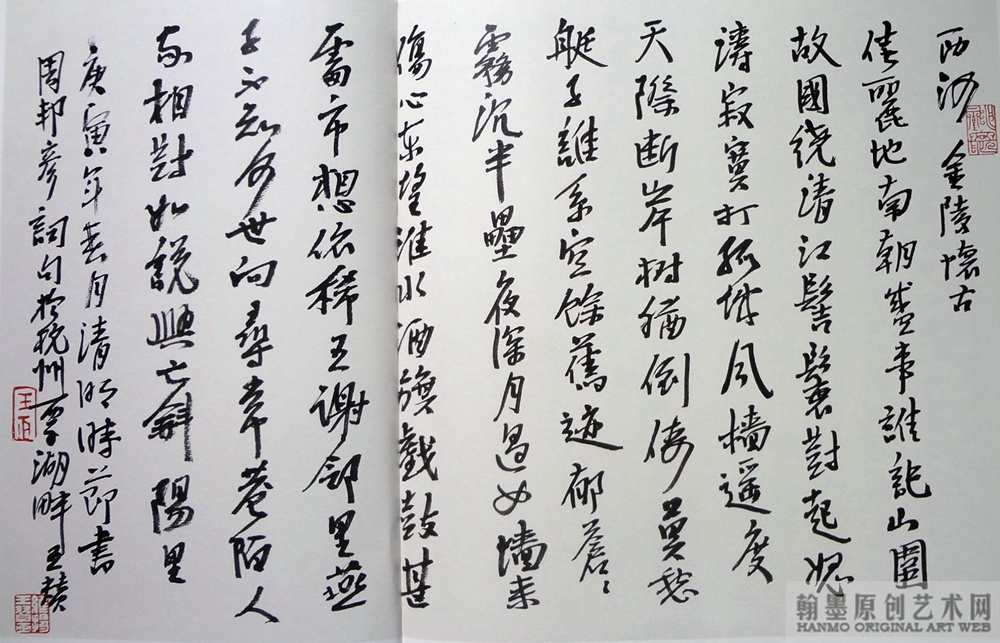 西河 金陵懷古
佳麗地南朝盛事誰記山圍
故國绕清江髻鬟對起怒
濤寂寞打孤城风樯遥度
天際断岸树猶倒倚莫愁
艇子誰系空餘舊迹郁蒼〻
霧沉半壘夜深月過女墙来
傷心东望淮水酒旗戲鼓甚
市想依稀王謝邻里燕
子不知何世向尋常巷陌人
家相對如說興亡斜陽里
庚寅年春月清明時節書
周邦彦詞句於杭州西子湖畔王
翰墨原创艺术网
HANMO ORIGINAL ART WEB